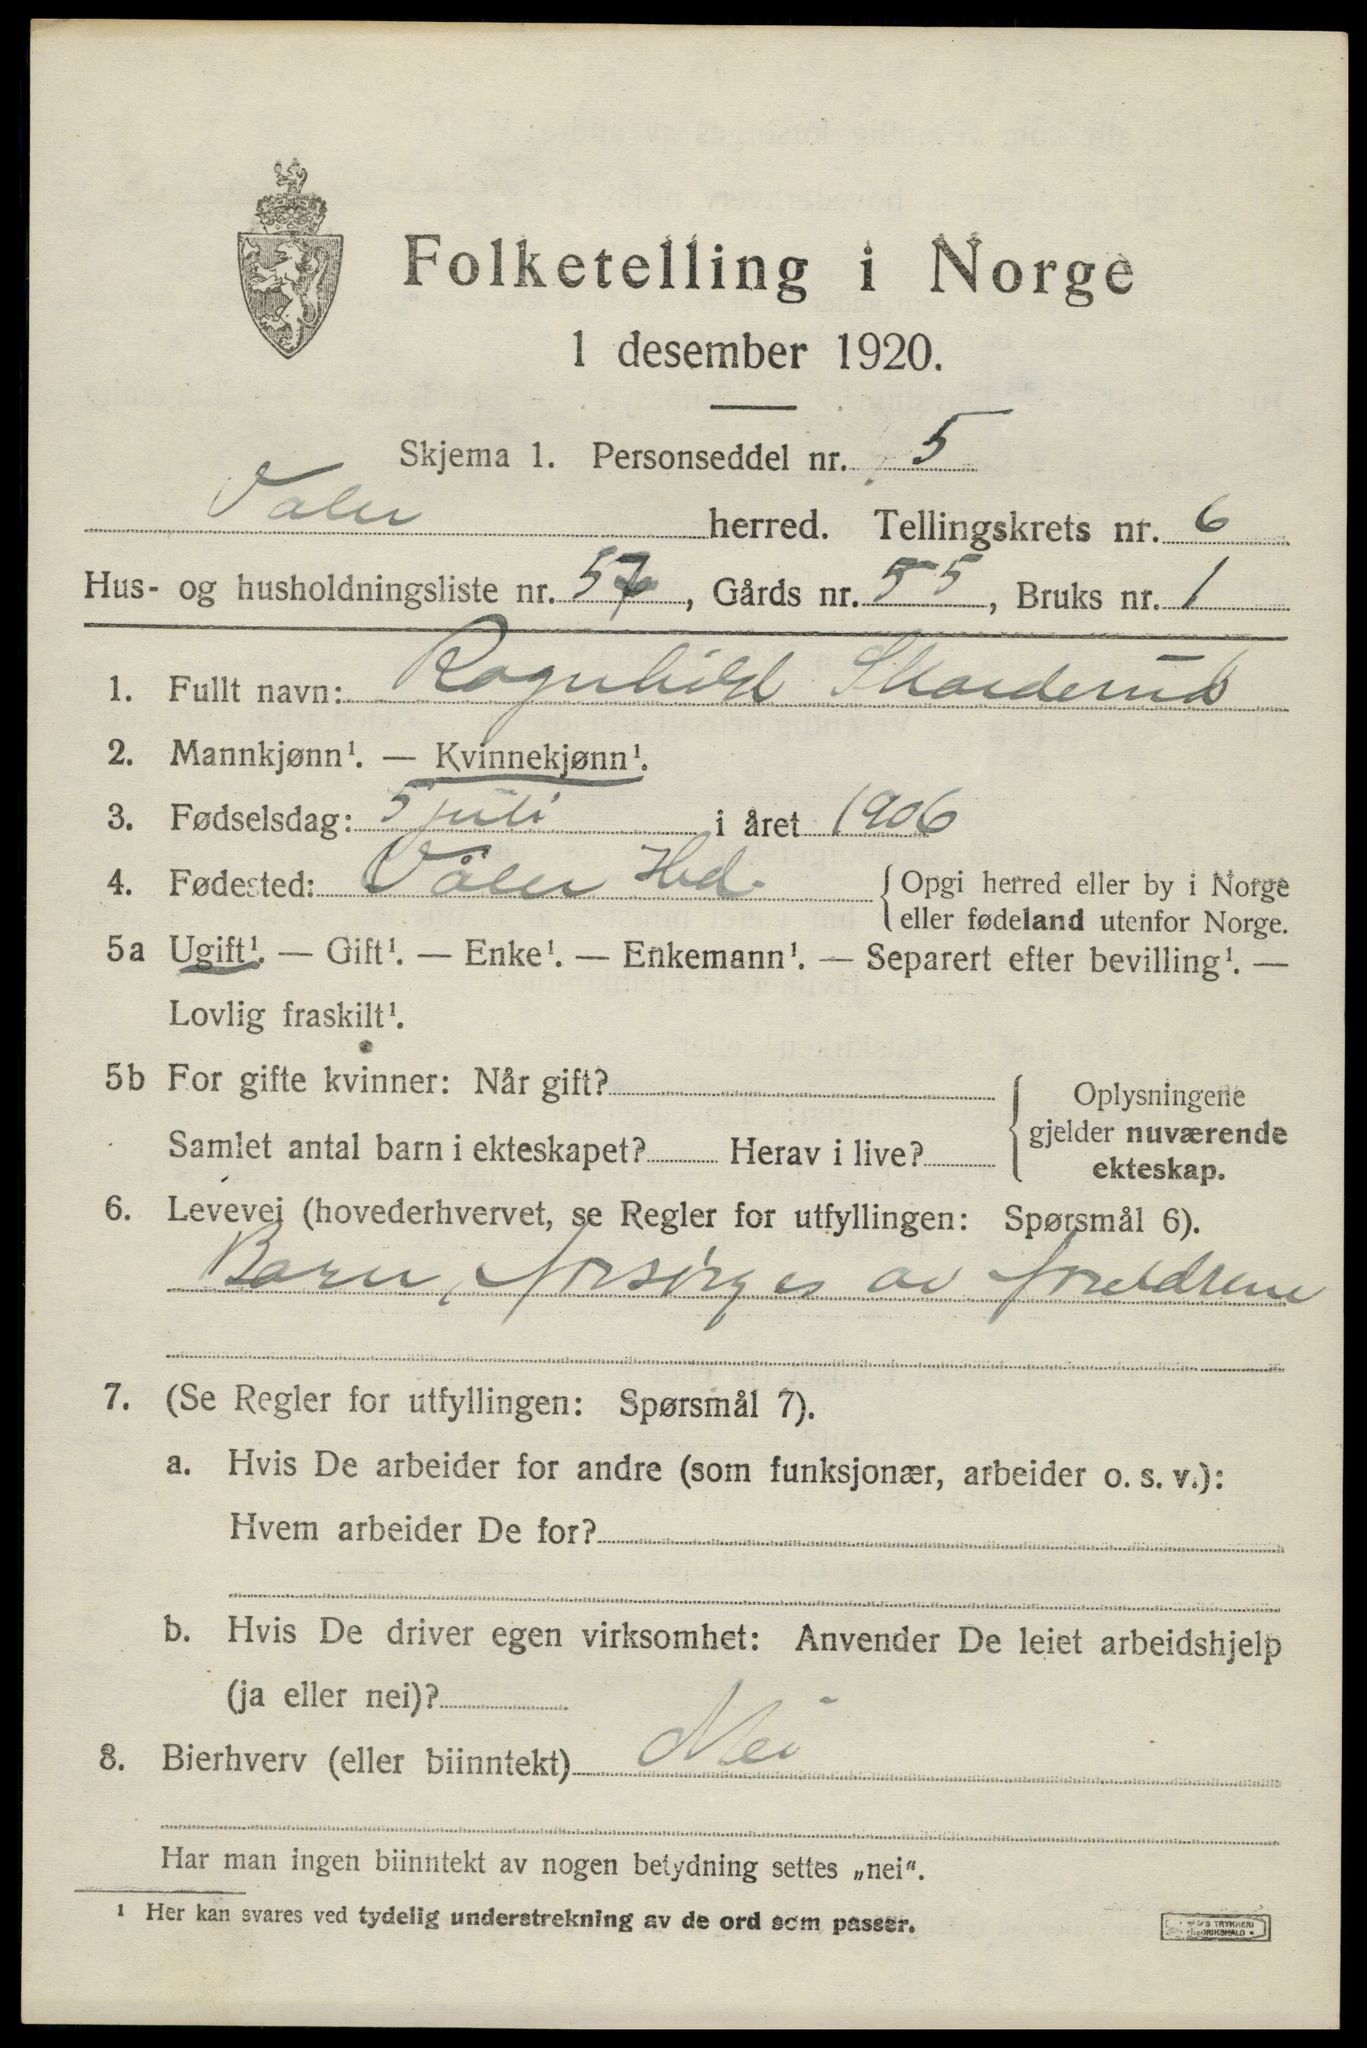 Folketelling i Norge
1 desember 1920.
Skjema 1. Personseddel nr. 5
Våler herred. Tellingskrets nr. 6
Hus- og husholdningsliste nr. 57, Gårds nr. 55, Bruks nr. 1
1. Fullt navn: Ragnhild Skarderud
2. Mannkjønn¹. — Kvinnekjønn¹.
3. Fødselsdag: 5 juli i året 1906
4. Fødested: Våler Hed. { Opgi herred eller by i Norge
eller fødeland utenfor Norge.
5a Ugift¹. — Gift¹. — Enke¹. — Enkemann¹. — Separert efter bevilling¹. —
Lovlig fraskilt¹.
5b For gifte kvinner: Når gift? { Oplysningene
gjelder nuværende
Samlet antal barn i ekteskapet? Herav i live?
ekteskap.
6. Levevei (hovederhvervet, se Regler for utfyllingen: Spørsmål 6).
Barn, forsørges av foreldrene
7. (Se Regler for utfyllingen: Spørsmål 7).
a. Hvis De arbeider for andre (som funksjonær, arbeider o. s. v.):
Hvem arbeider De for?
b. Hvis De driver egen virksomhet: Anvender De leiet arbeidshjelp
(ja eller nei)?
8. Bierhverv (eller biinntekt) Nei
Har man ingen biinntekt av nogen betydning settes „nei“.
¹ Her kan svares ved tydelig understrekning av de ord som passer.
TRYKKERI